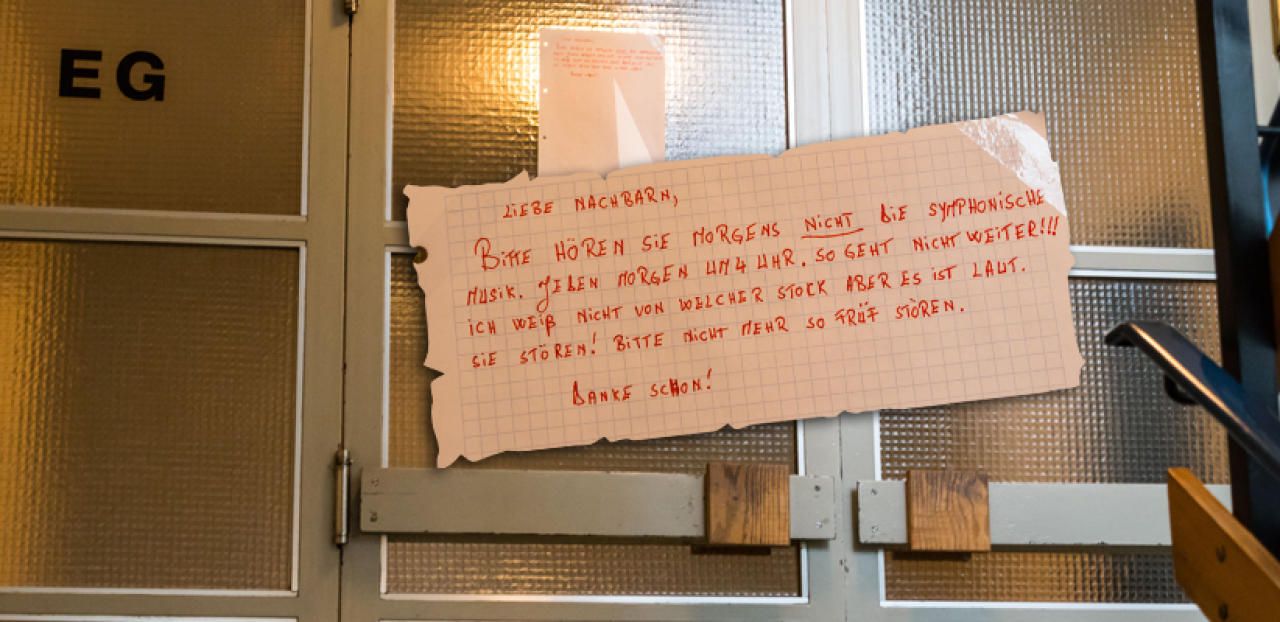 EG
LIEBE NACHBARN,
BITTE HÖREN SIE MORGENS NICHT DIE SYMPHONISCHE
MUSIK. JEDEN MORGEN UM 4 UHR. SO GEHT NICHT WEITER!!!
ICH WEIß NICHT VON WELCHER STOCK ABER ES IST LAUT.
SIE STÖREN! BITTE NICHT MEHR SO FRÜF STÖREN.
DANKE SCHON!